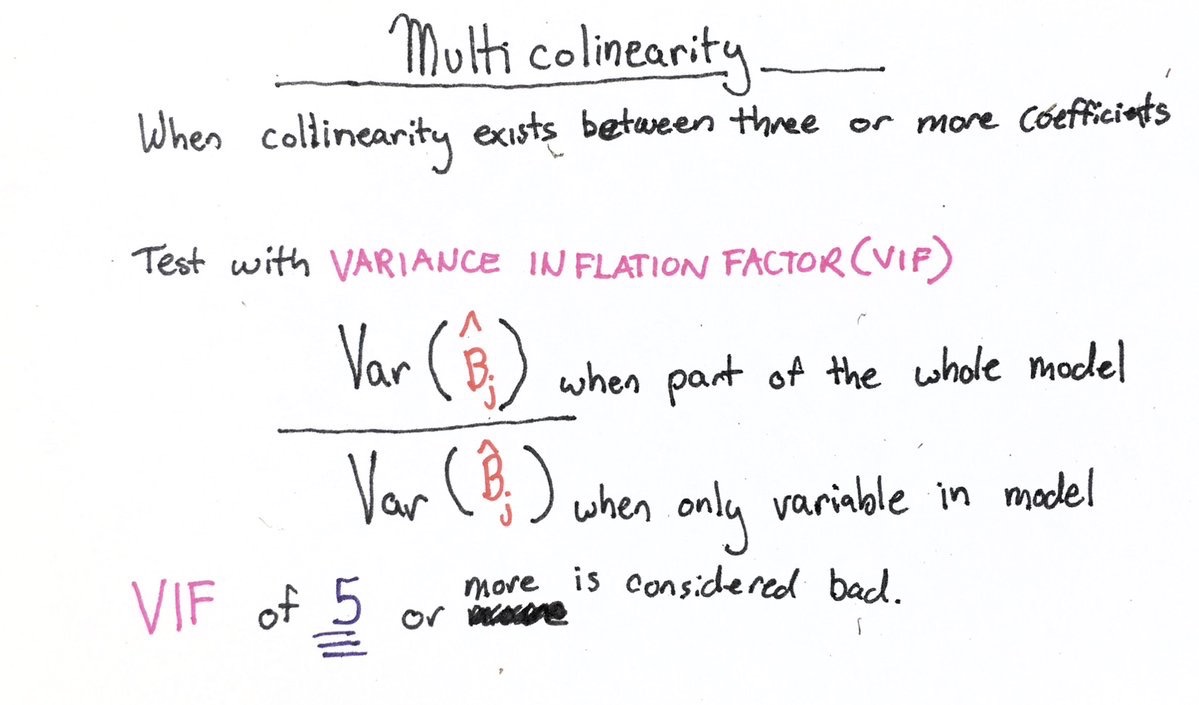 Multi colinearity
When collinearity exists between three or more coefficients
Test with VARIANCE INFLATION FACTOR (VIF)
Var (B̂j) when part of the whole model
Var (B̂j) when only variable in model
VIF of 5 or more is considered bad.